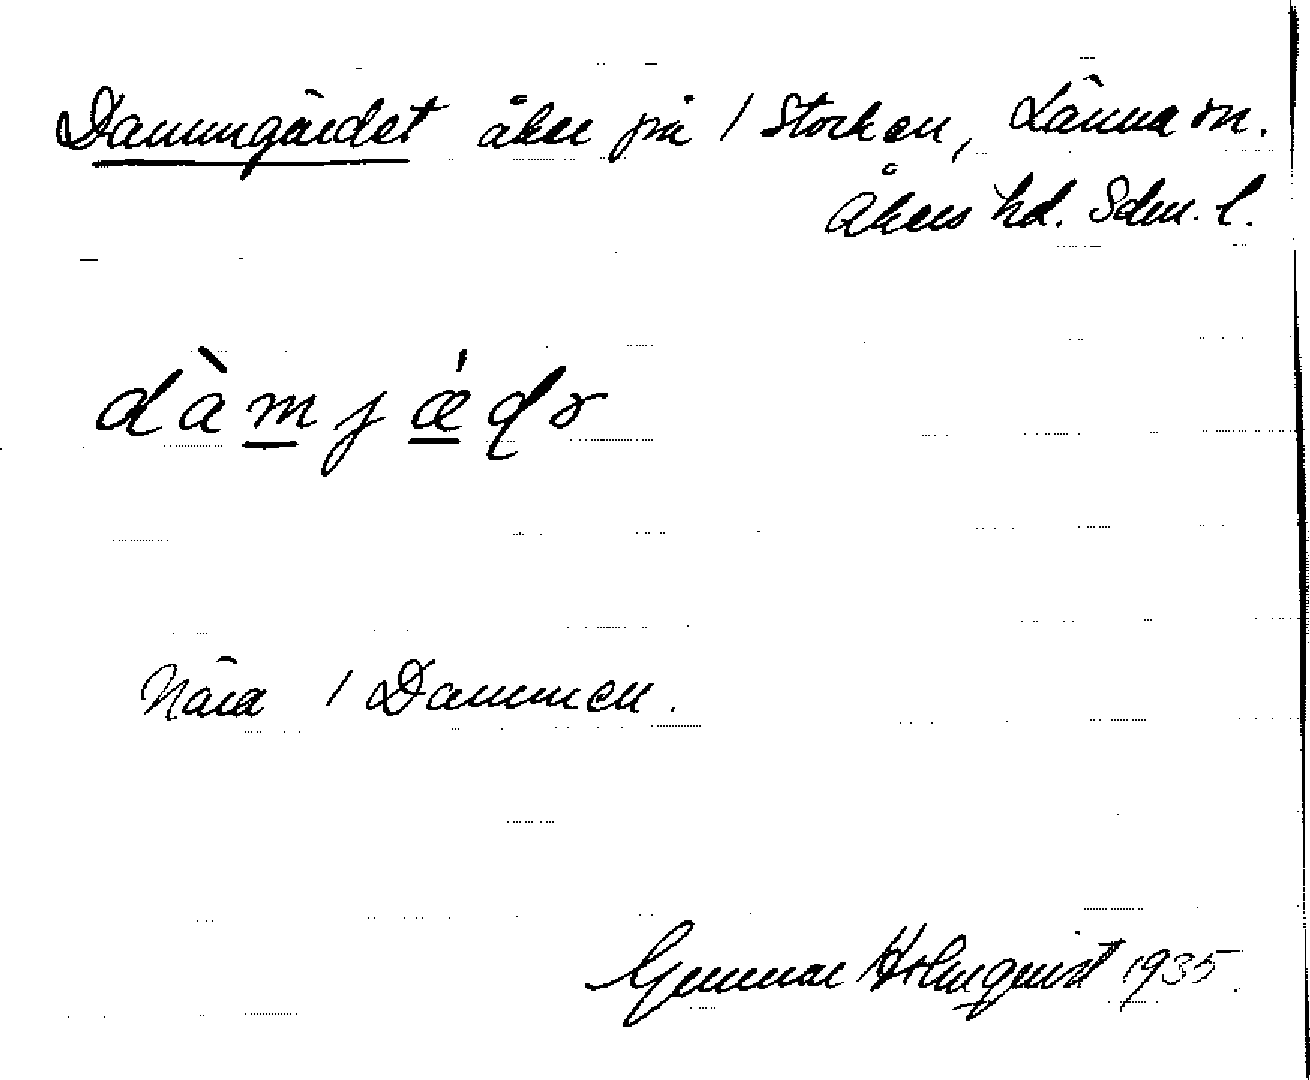 Dammgärdet åker på / Storken, Länna sn.
Åkers hd. Sdm. l.
dàmjǽdɤ
Nära / Dammen.
Gunnar Holmquist 1935.